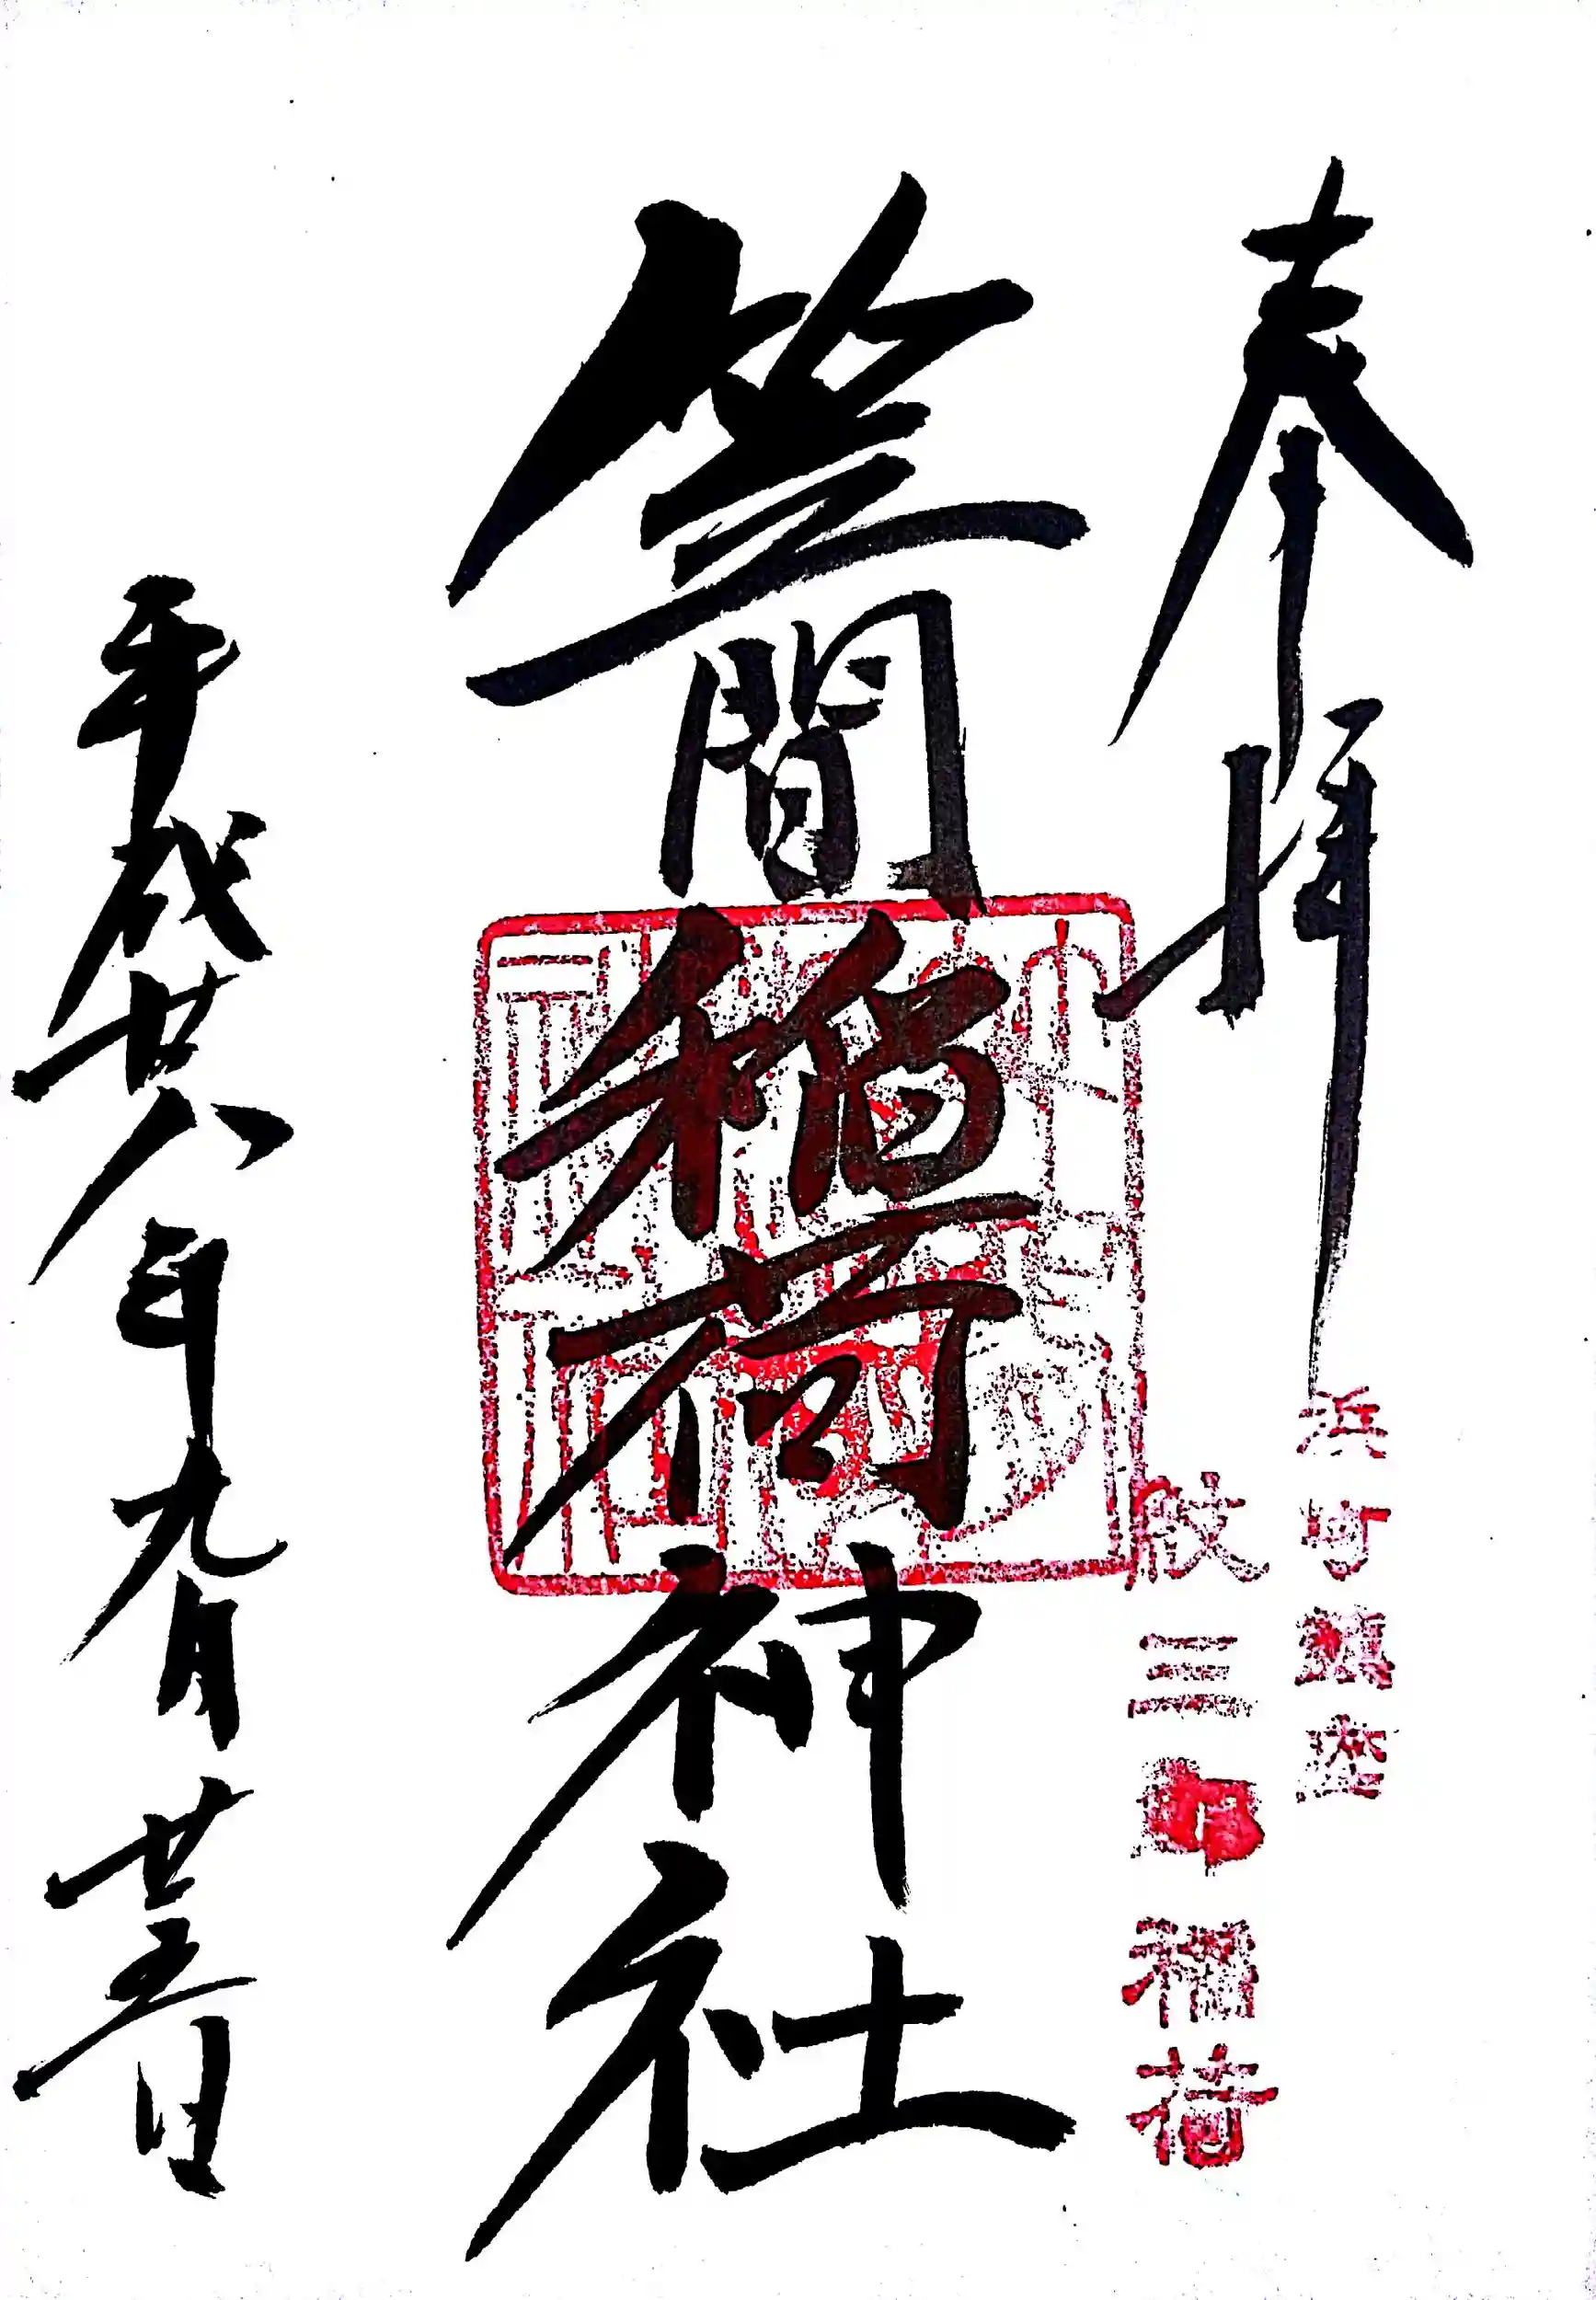 奉拝
浜町鎮座
笠間稲荷神社
平成廿八年九月廿五日